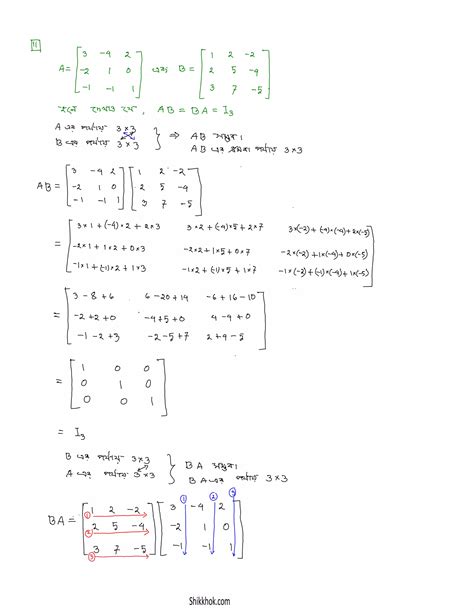 11
A = [3 -4 2; -2 1 0; -1 -1 1] এবং B = [1 2 -2; 2 5 -4; 3 7 -5]
হলে দেখাও যে, AB = BA = I₃
A এর পর্যায় 3×3
B এর পর্যায় 3×3
⇒ AB সম্ভব।
AB এর ক্রম পর্যায় 3×3
AB = [3 -4 2; -2 1 0; -1 -1 1] [1 2 -2; 2 5 -4; 3 7 -5]
= [3×1+(-4)×2+2×3 3×2+(-4)×5+2×7 3×(-2)+(-4)×(-4)+2×(-5)
-2×1+1×2+0×3 -2×2+1×5+0×7 -2×(-2)+1×(-4)+0×(-5)
-1×1+(-1)×2+1×3 -1×2+(-1)×5+1×7 -1×(-2)+(-1)×(-4)+1×(-5)]
= [3-8+6 6-20+14 -6+16-10
-2+2+0 -4+5+0 4-4+0
-1-2+3 -2-5+7 2+4-5]
= [1 0 0
0 1 0
0 0 1]
= I₃
B এর পর্যায় 3×3
A এর পর্যায় 3×3
BA সম্ভব।
BA এর পর্যায় 3×3
BA = [1 2 -2; 2 5 -4; 3 7 -5] [3 -4 2; -2 1 0; -1 -1 1]
Shikkhok.com